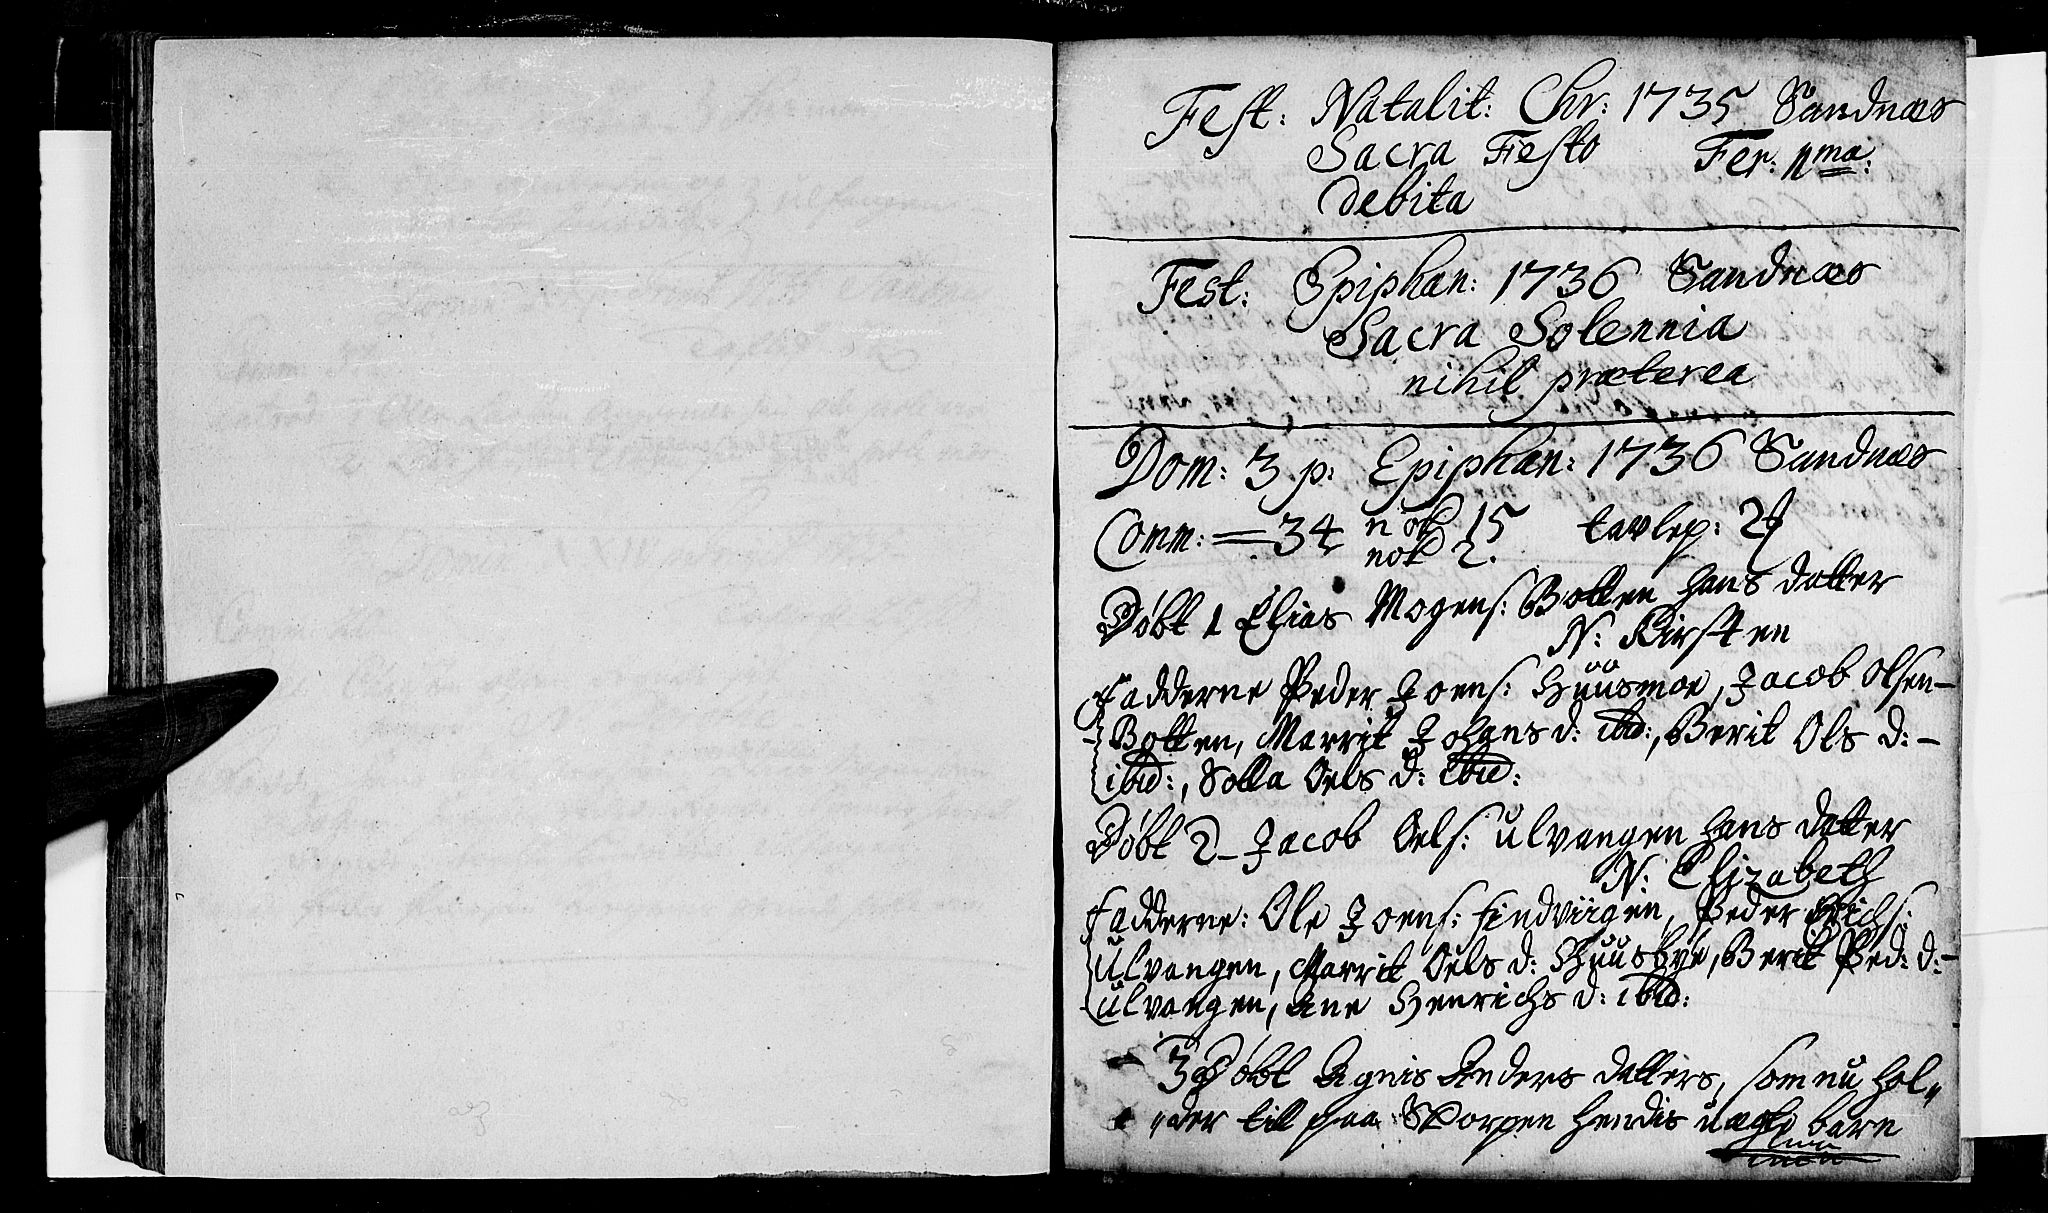 Fest: Natalit: Chr: 1735 Sandnæs
Sacra Festo Fer: IIma:
debita
Fest: Epiphan: 1736 Sandnæs
Sacra Solennia
nihil præterea
Dom: 3 p: Epiphan: 1736 Sandnæs
Comm: = 34 nok 15 tavlep:
nok 2.
Døbt 1 Elias Mogens: Botten hans datter
N: Kirsten
Fadderne Peder Joens: Huusmoe, Jacob Olsen
Botten, Marrit Johans d: ibid:, Berit Ols d:
ibid:, Solla Oels d: ibid:
Døbt 2 Jacob Oels: Ulvangen hans datter
N: Elizabeth
Fadderne: Ole Joens: Findviigen, Peder Erichs:
Ulvangen, Marrit Oels d: Huusbye, Berit Ped: d:
Ulvangen, Ane Henrichs d: ibid:
3 Døbt Agnis Anders datters, som nu hol„
„der till paa Skorpen hendis uægte barn